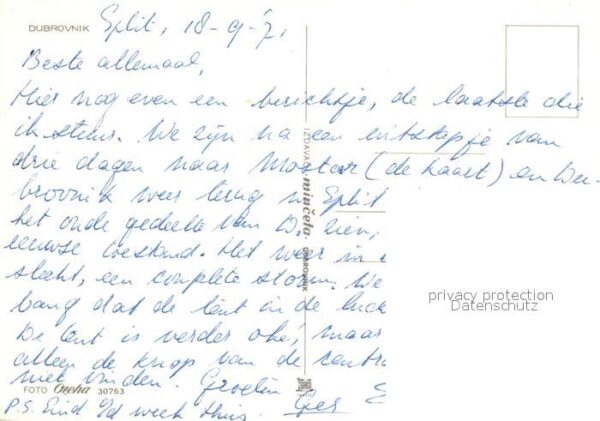 DUBROVNIK Split, 18-9-'7.
Beste allemaal,
Hier nog even een berichtje, de laatste die
ik stuur. We zijn na een uitstapje van
drie dagen naar Mostar (de kaart) en Du-
brovnik weer terug in Split
het oude gedeelte van D. zien,
eeuwse toestand. Het weer in
slecht, een complete storm. We
bang dat de tent in de luch
De tent is verder oke, maar
alleen de knop van de centra
niet vinden. Groeten
FOTO Oreha 30763 Ger
P.S. Eind v/d week thuis.
IZDAVAČ minčeta DUBROVNIK
privacy protection
Datenschutz